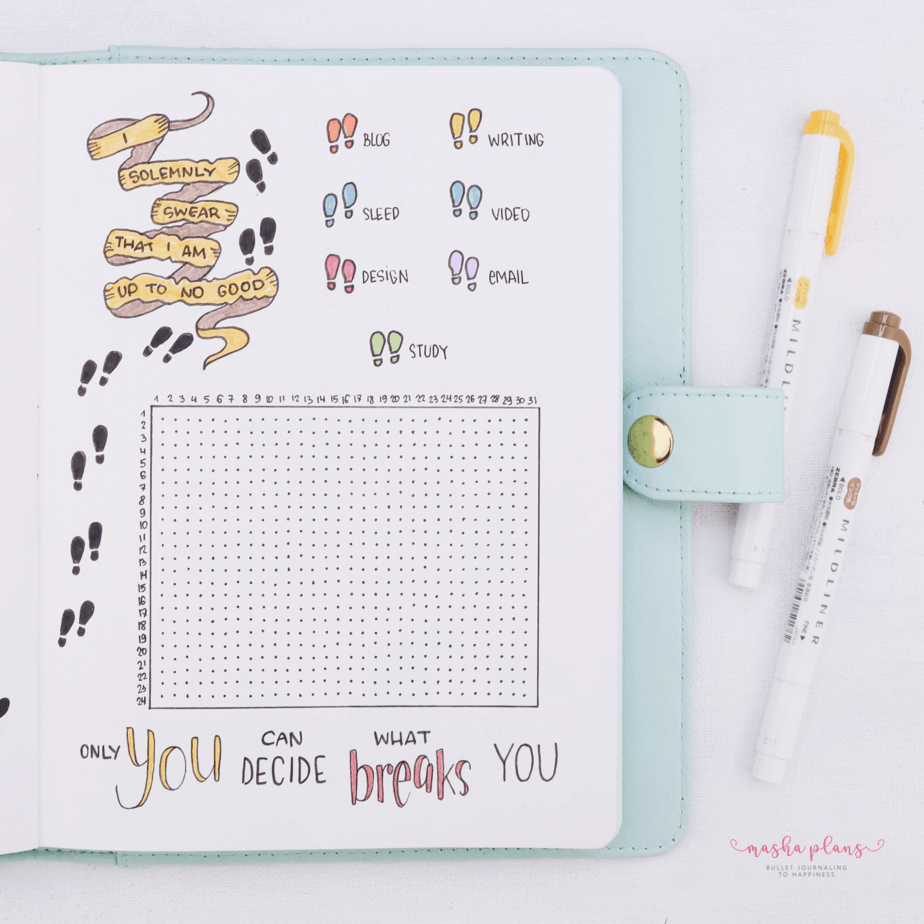 I
SOLEMNLY
SWEAR
THAT I AM
UP TO NO GOOD
BLOG
WRITING
SLEED
VIDEO
DESIGN
EMAIL
STUDY
1 2 3 4 5 6 7 8 9 10 11 12 13 14 15 16 17 18 19 20 21 22 23 24 25 26 27 28 29 30 31
1
2
3
4
5
6
7
8
9
10
11
12
13
14
15
16
17
18
19
20
21
22
23
24
ONLY YOU CAN DECIDE WHAT breaks YOU
ZEBRA
BOLD
MILDL
ZEBRA
BOLD
MILDLINER
FINE
masha plans
BULLET JOURNALING
TO HAPPINESS